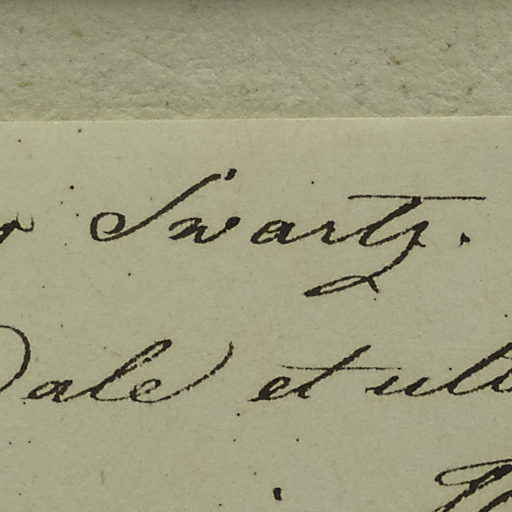 r Swartz.
Dale et ult